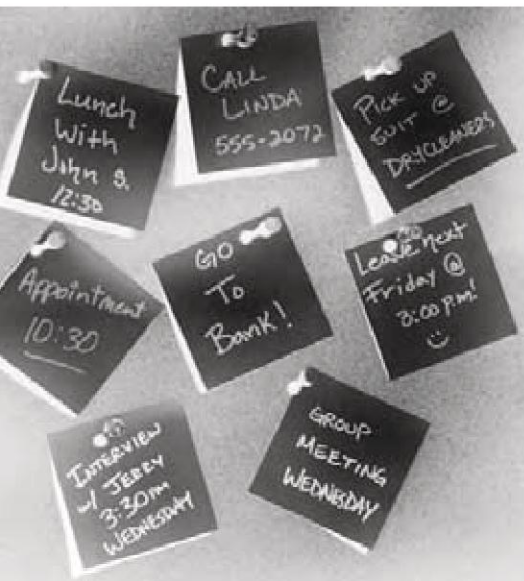 Lunch
With
John S.
12:30
CALL
LINDA
555-2072
PICK UP
SUIT @
DRYCLEANERS
Appointment
10:30
GO
To
Bank!
Leave next
Friday @
3:00 pm!
INTERVIEW
w/ JERRY
3:30PM
WEDNESDAY
GROUP
MEETING
WEDNESDAY